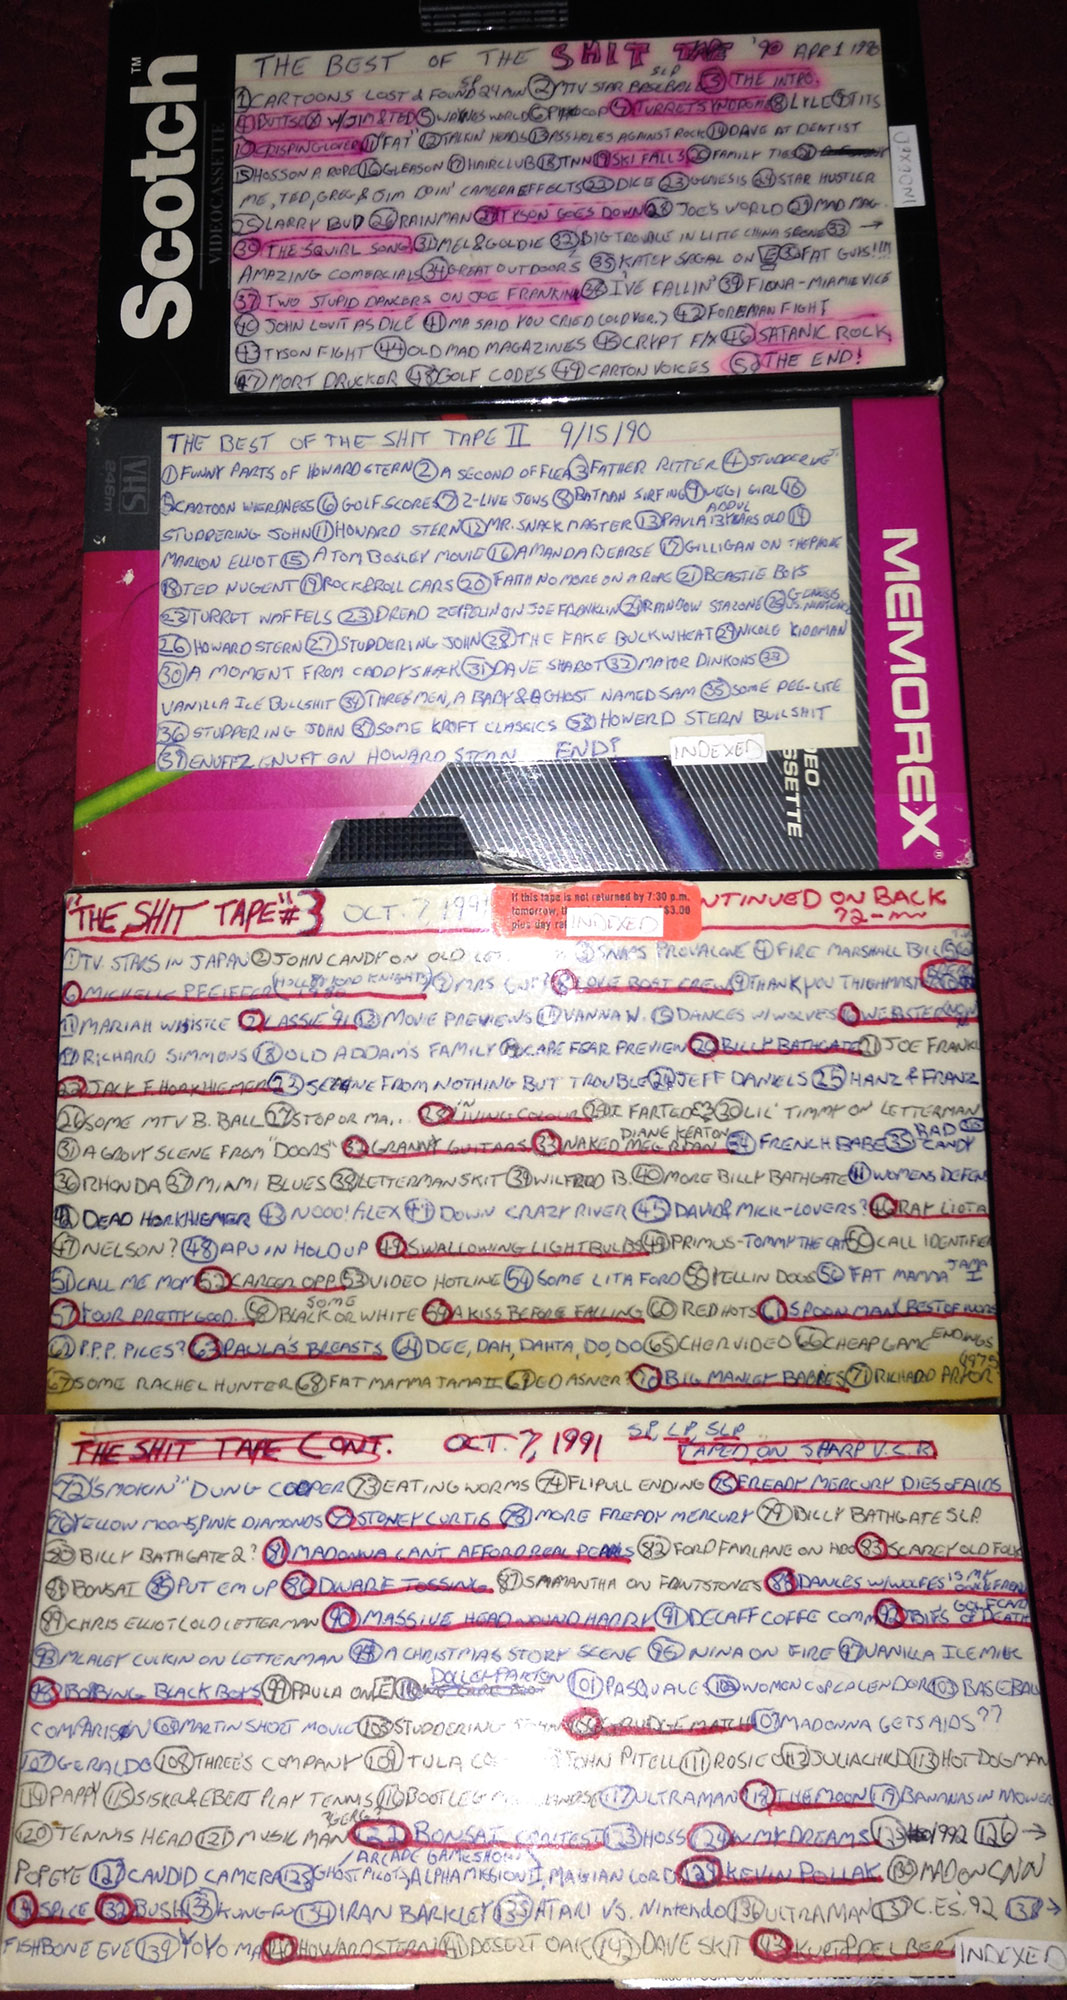 Scotch™
VIDEOCASSETTE
THE BEST OF THE SHIT TAPE '90 APR 1 1990
SP SLP
① CARTOONS LOST & FOUND 24 MIN ② MTV STAR BASEBALL ③ THE INTRO.
④ BUTTSEX W/JIM & TED ⑤ WAYNES WORLD ⑥ COP ⑦ TURRETSYNDROME ⑧ LYLE ⑨ TITS
⑩ CRISPINGLOVER ⑪ "FAT" ⑫ TALKIN HEADS ⑬ ASSHOLES AGAINST ROCK ⑭ DAVE AT DENTIST
⑮ HOSS ON A ROPE ⑯ GLEASON ⑰ HAIRCLUB ⑱ TNN ⑲ SKI FALLS ⑳ FAMILY TIES ㉑
ME, TED, GREG & JIM DOIN' CAMERA EFFECTS ㉒ DICE ㉓ GENESIS ㉔ STAR HUSTLER
㉕ LARRY BUD ㉖ RAINMAN ㉗ TYSON GOES DOWN ㉘ JOE'S WORLD ㉙ MAD MAG.
㉚ THE SQUIRL SONG ㉛ MEL & GOLDIE ㉜ BIG TROUBLE IN LITTE CHINA ㉝ →
AMAZING COMERCIALS ㉞ GREAT OUTDOORS ㉟ KATEY SAGAL ON E ㊱ FAT GUYS!!!!
㊲ TWO STUPID DANCERS ON JOE FRANKLIN ㊳ I'VE FALLIN' ㊴ FIONA - MIAMI VICE
㊵ JOHN LOVIT AS DICE ㊶ MA SAID YOU CRIED (OLD VER.) ㊷ FOREMAN FIGHT
㊸ TYSON FIGHT ㊹ OLD MAD MAGAZINES ㊺ CRYPT F/X ㊻ SATANIC ROCK
㊼ MORT DRUCKER ㊽ GOLF CODES ㊾ CARTON VOICES ㊿ THE END!
INDEXED
VHS
246m
THE BEST OF THE SHIT TAPE II 9/15/90
① FUNNY PARTS OF HOWARD STERN ② A SECOND OF FLEA ③ FATHER RITTER ④
⑤ CARTOON WIERDNESS ⑥ GOLF SCORES ⑦ 2-LIVE JEWS ⑧ BATMAN SIRFING ⑨ VEGI GIRL ⑩
STUDDERING JOHN ⑪ HOWARD STERN ⑫ MR. SNACK MASTER ⑬ PAULA ABDUL 13 YEARS OLD ⑭
MARION ELLIOT ⑮ A TOM BOSLEY MOVIE ⑯ AMANDA BEARSE ⑰ GILLIGAN ON THE PHONE
⑱ TED NUGENT ⑲ ROCK & ROLL CARS ⑳ FAITH NO MORE ON A ROPE ㉑ BEASTIE BOYS
㉒ TURRET WAFFELS ㉓ DREAD ZEPPLIN ON JOE FRANKLIN ㉔ RAINDOW STALONE ㉕ GENESIS VS. NINTENDO
㉖ HOWARD STERN ㉗ STUDDERING JOHN ㉘ THE FAKE BUCKWHEAT ㉙ NICOLE KIDDMAN
㉚ A MOMENT FROM CADDYSHACK ㉛ DAVE SHABOT ㉜ MAYOR DINKONS ㉝
VANILLA ICE BULLSHIT ㉞ THREE MEN, A BABY & A GHOST NAMED SAM ㉟ SOME PEE-LITE
㊱ STUDDERING JOHN ㊲ SOME KROFT CLASSICS ㊳ HOWERD STERN BULLSHIT
㊴ ENUFFZ ENUFF ON HOWARD STERN END! INDEXED
MEMOREX®
"THE SHIT TAPE" #3 OCT. 7, 1991 CONTINUED ON BACK
72-
If this tape is not returned by 7:30 p.m.
tomorrow, $3.00
plus day INDEXED
① TV STARS IN JAPAN ② JOHN CANDY ON OLD ③ SNAPS PROVALONE ④ FIRE MARSHALL BILL ⑤
⑥ MICHELLE PFEIFFER (HOLLYWOOD KNIGHTS) ⑦ MRS GUY? ⑧ LOVE BOAT CREW ⑨ THANK YOU THIGHMASTER
⑪ MARIAH WHISTLE ⑫ LASSIE '91 ⑬ MOVIE PREVIEWS ⑭ VANNA W. ⑮ DANCES W/WOLVES ⑯ WEBSTER
⑰ RICHARD SIMMONS ⑱ OLD ADDAM'S FAMILY ⑲ CAPE FEAR PREVIEW ⑳ BILLY BATHGATE ㉑ JOE FRANKL
㉒ JACK F. HORKHIEMER ㉓ SCENE FROM NOTHING BUT TROUBLE ㉔ JEFF DANIELS ㉕ HANZ & FRANZ
㉖ SOME MTV B. BALL ㉗ STOP OR MA... ㉘ 'IN' LIVING COLOUR ㉙ I FARTED ㉚ LIL' TIMMY ON LETTERMAN
㉛ A GROVY SCENE FROM "DOORS" ㉜ GRANNY GUITARS ㉝ NAKED MEG RYAN DIANE KEATON ㉞ FRENCH BABE ㉟ BAD CANDY
㊱ RHONDA ㊲ MIAMI BLUES ㊳ LETTERMAN SKIT ㊴ WILFRED B. ㊵ MORE BILLY BATHGATE ㊶ WOMENS DEFEN
㊷ DEAD HORKHIEMER ㊸ NOOO! ALEX ㊹ DOWN CRAZY RIVER ㊺ DAVID & MICK-LOVERS? ㊻ RAY LIOTA
㊼ NELSON? ㊽ APU IN HOLD UP ㊾ SWALLOWING LIGHTBULBS ㊾ PRIMUS-TOMMY THE CAT ㊿ CALL IDENTIFIE
51 CALL ME MOM 52 CAREER OPP. 53 VIDEO HOTLINE 54 SOME LITA FORD 55 YELLIN DOGS 56 FAT MAMMA JAMA I
57 FOUR PRETTY GOOD. 58 SOME BLACK OR WHITE 59 A KISS BEFORE FALLING 60 RED HOTS 61 SPOON MAN & BEST OF
62 P.P.P. PILES? 63 PAULA'S BREASTS 64 DEE, DAH, DAHTA, DO, DO 65 CHER VIDEO 66 CHEAP GAME ENDINGS
67 SOME RACHEL HUNTER 68 FAT MAMMA JAMA II 69 ED ASNER? 70 BIG MANLEY BABBES 71 RICHARD PRYOR? (1975)
THE SHIT TAPE CONT. OCT. 7, 1991 SP, LP, SLP TAPED ON SHARP V.C.R
72 "SMOKIN" DUNG COOPER 73 EATING WORMS 74 FLIPULL ENDING 75 FREADY MERCURY DIES OF AIDS
76 YELLOW MOONS, PINK DIAMONDS 77 STONEY CURTIS 78 MORE FREADY MERCURY 79 BILLY BATHGATE SLP
80 BILLY BATHGATE 2? 81 MADONNA CAN'T AFFORD REAL PEARLS 82 FORD FARLANE ON HBO 83 SCAREY OLD FOLK
84 BONSAI 85 PUT EM UP 86 DWARF TOSSING 87 SAMANTHA ON FLINTSTONES 88 DANCES W/WOLFES IS MY ONLY FREAK
89 CHRIS ELLIOT (OLD LETTERMAN) 90 MASSIVE HEAD WOUND HARRY 91 DECAFF COFFE COMM 92 GOLFCART OF DEATH
93 MCALEY CULKIN ON LETTERMAN 95 A CHRISTMAS STORY SCENE 96 NINA ON FIRE 97 VANILLA ICE MILK
98 BOBBING BLACK BOYS 99 PAULA ON E 100 DOLLEY PARTON 101 PASQUALE 102 WOMEN COP CALENDOR 103 BASEBALL
COMPARISON 104 MARTIN SHORT MOVIE 105 STUDDERING 106 GRUDGE MATCH 107 MADONNA GETS AIDS??
107 GERALDO 108 THREE'S COMPANY 109 TULA JOHN PITELL 111 ROSIE O 112 JULIA CHILD 113 HOT DOG MAN
114 PAPPY 115 SISKEL & EBERT PLAY TENNIS 116 BOOTLEG 117 ULTRAMAN 118 THE MOON 119 BANANAS IN MOWER
120 TENNIS HEAD 121 MUSIC MAN 122 BONSAI CONTEST 123 HOSS 124 IN MY DREAMS 125 1992 126 →
POPEYE 127 CANDID CAMERA 128 ARCADE GAME SHOW GHOST PILOTS, ALPHA MISSION II, MAGIAN LORD 129 KEVIN POLLAK 130 MAD ON CNN
131 SPICE 132 BUSH 133 KUNG FU 134 IRAN BARKLEY 135 ATARI VS. Nintendo 136 ULTRAMAN 137 C.E.S. '92 138 →
FISHBONE EVE 139 YOYO MA 140 HOWARD STERN 141 DESERT OAK 142 DAVE SKIT 143 KURT P DEL BERT INDEXED